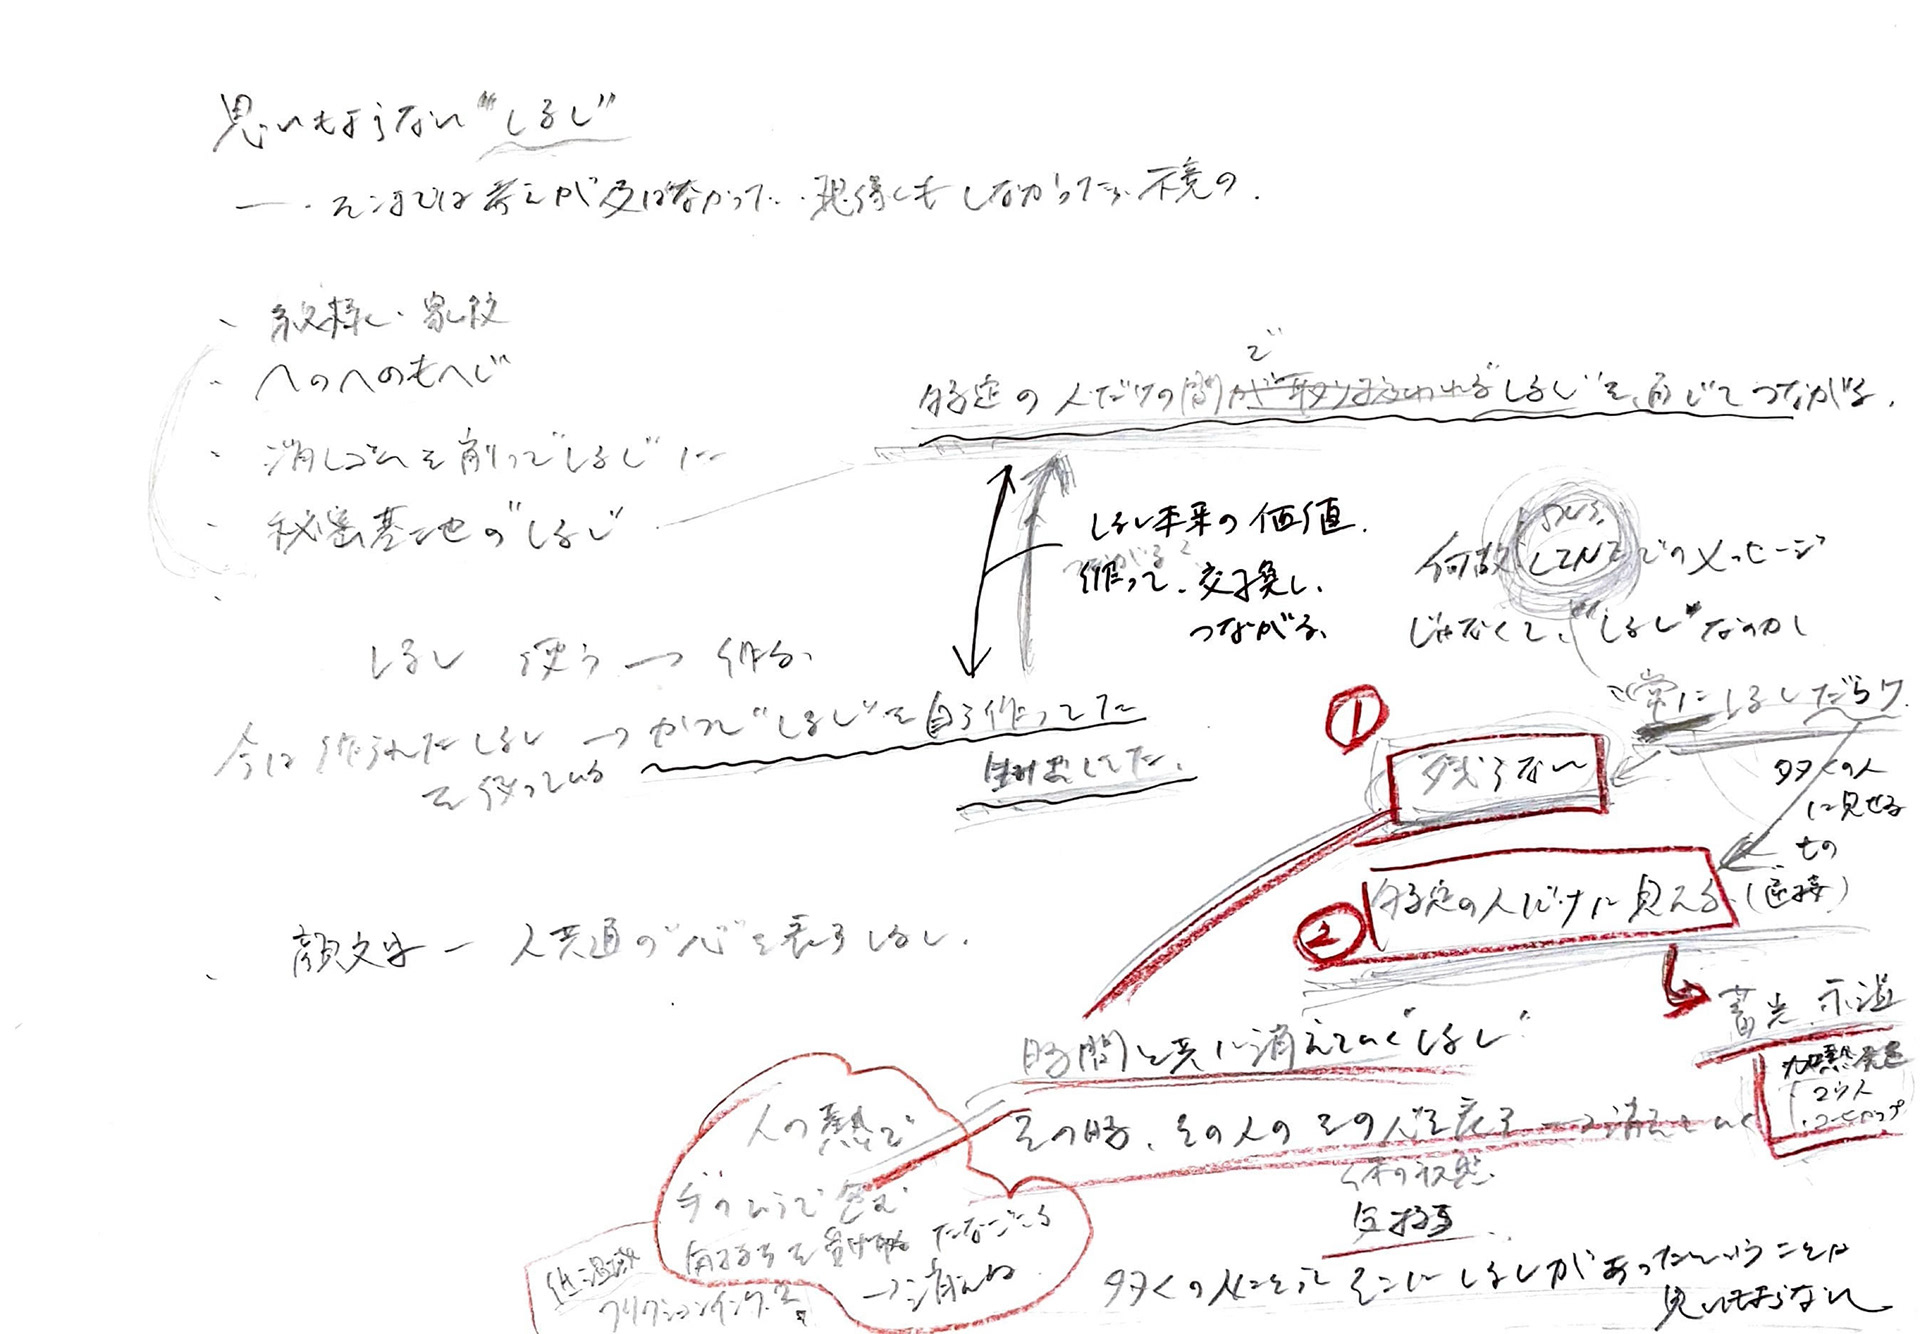 思いもよらない“しるし”
― そこまでは考えが及ばなかった. 想像もしなかった. 不意の.
・紋様・家紋
・へのへのもへじ
・消しゴムを削って“しるし”に
・秘密基地の“しるし”
特定の人だけの間で“しるし”を通じてつながる.
しるし本来の価値.
作って、交換し、
つながる
何故 LINEでのメッセージ
じゃなくて、“しるし”なのか
しるし 使う → 作る
今は作られたしるし → かつて“しるし”を自ら作ってた
を使っている
生み出してた.
常にしるしだらけ
①
残らない
多くの人
に見せる
もの
②
特定の人だけに見える
・顔文字 ー 人共通の“心”を表すしるし.
蓄光 示温
時間と共に消えていく“しるし”
加熱発色
コラム
・コーヒーカップ
その時、その人のその心を表す → 消えていく
人の熱で
手のひらで包む
気持ちを受け取る
→ 消える
体の状態
低温域
フリクションインク
多くの人にとって そこに しるしがあったということは
思いもよらない